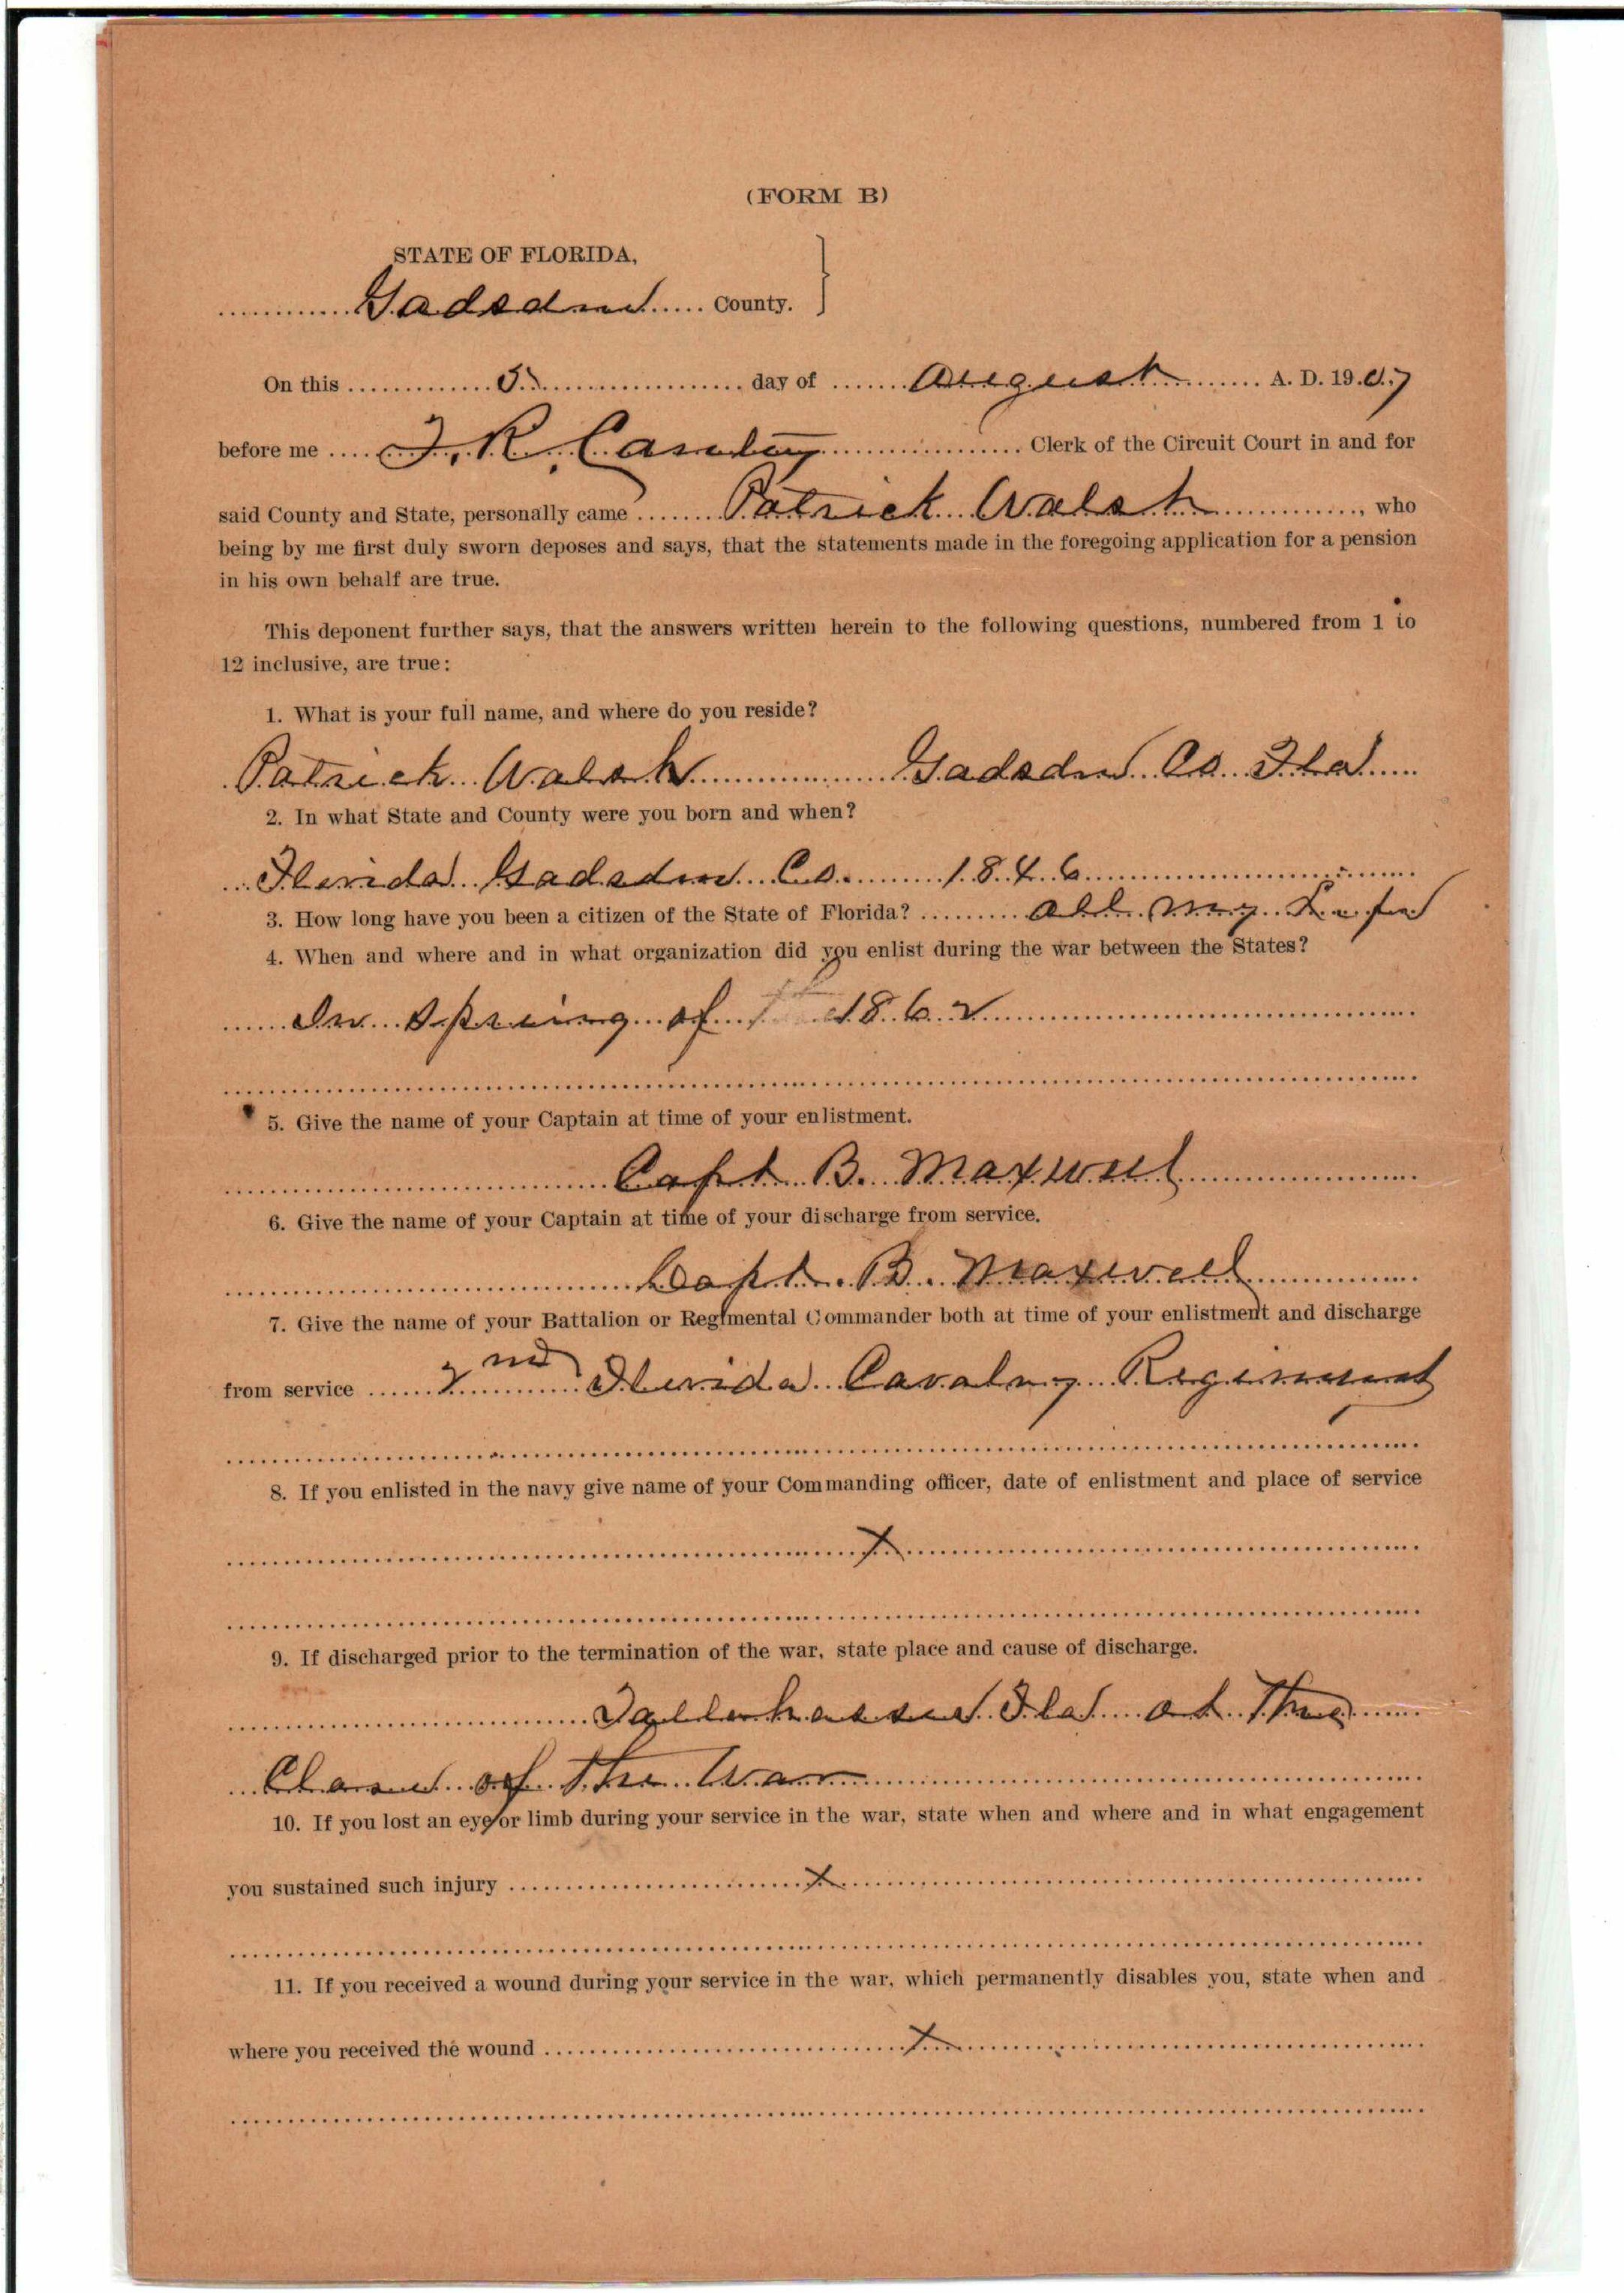 (FORM B)
STATE OF FLORIDA,
Gadsden County.
On this 5 day of August A. D. 1907
before me J. R. Clerk of the Circuit Court in and for
said County and State, personally came Patrick Walsh, who
being by me first duly sworn deposes and says, that the statements made in the foregoing application for a pension
in his own behalf are true.
This deponent further says, that the answers written herein to the following questions, numbered from 1 to
12 inclusive, are true:
1. What is your full name, and where do you reside?
Patrick Walsh Gadsden Co. Fla
2. In what State and County were you born and when?
Florida Gadsden Co. 1846
3. How long have you been a citizen of the State of Florida? all my Life
4. When and where and in what organization did you enlist during the war between the States?
In spring of 1862
5. Give the name of your Captain at time of your enlistment.
Capt B. Maxwell
6. Give the name of your Captain at time of your discharge from service.
Capt. B. Maxwell
7. Give the name of your Battalion or Regimental Commander both at time of your enlistment and discharge
from service 2nd Florida Cavalry Regiment
8. If you enlisted in the navy give name of your Commanding officer, date of enlistment and place of service
X
9. If discharged prior to the termination of the war, state place and cause of discharge.
Tallahassee Fla at the
Close of the War
10. If you lost an eye or limb during your service in the war, state when and where and in what engagement
you sustained such injury X
11. If you received a wound during your service in the war, which permanently disables you, state when and
where you received the wound X